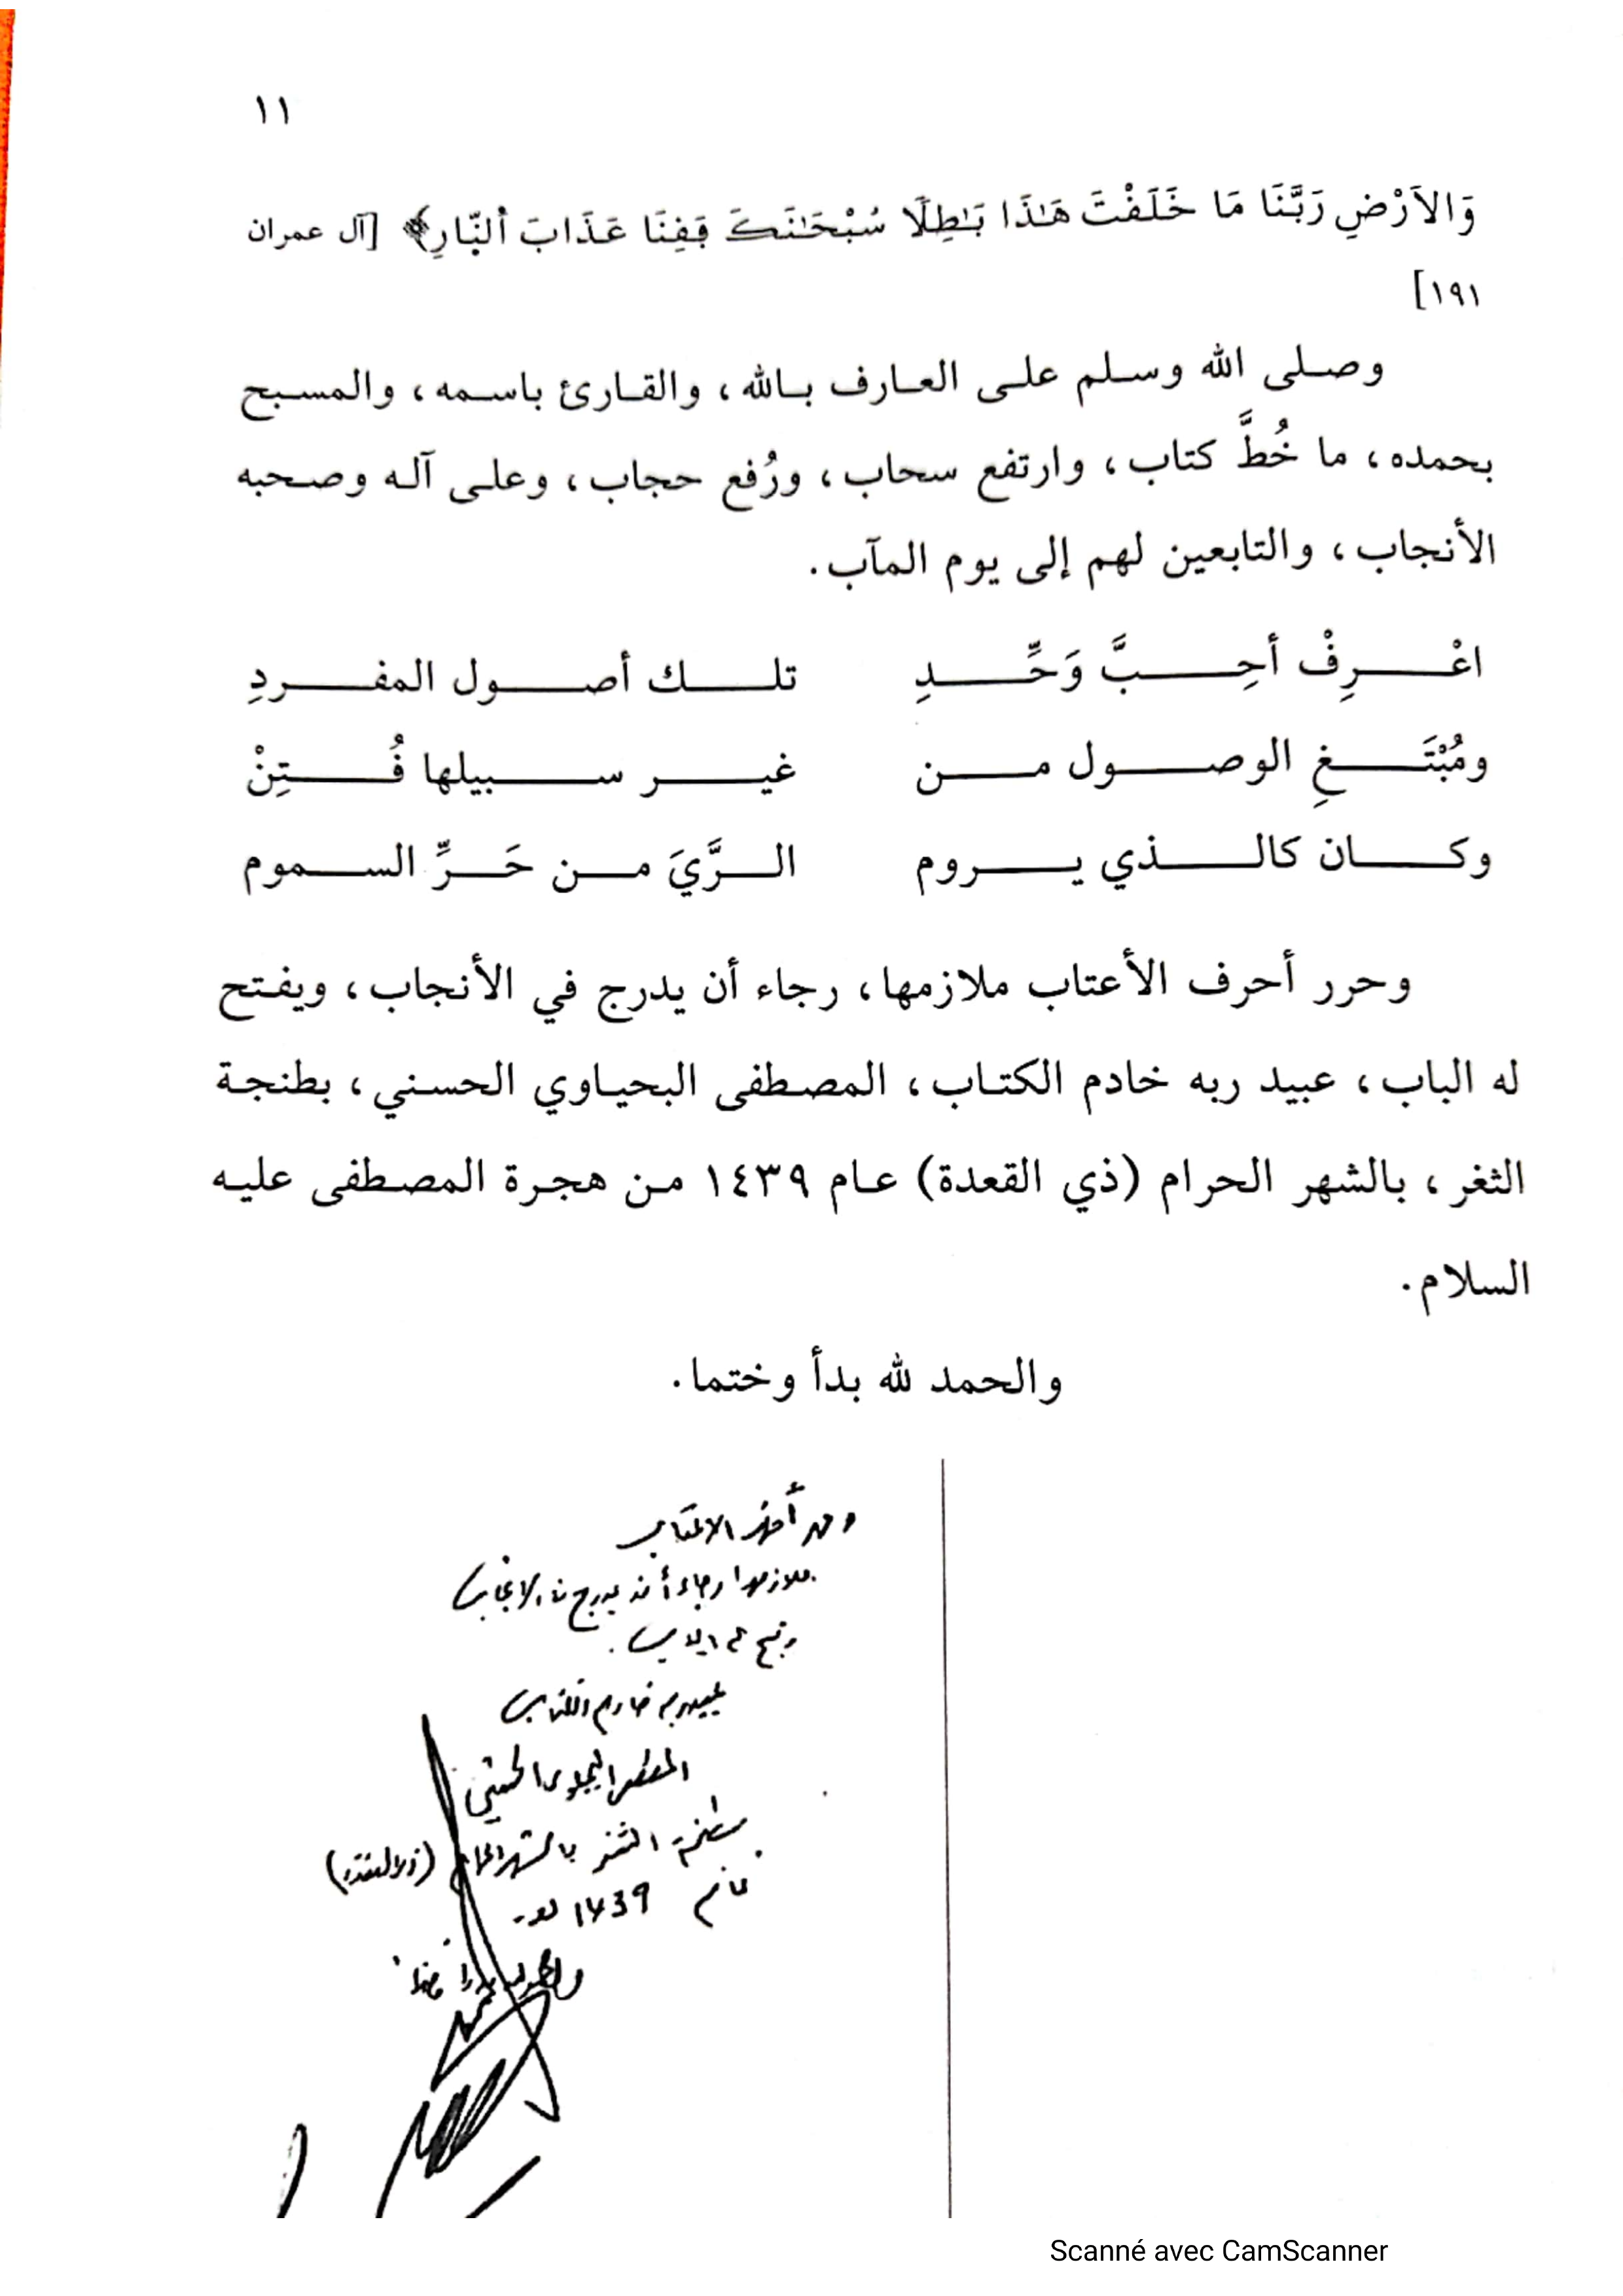 ١١
وَالاَرْضِ رَبَّنَا مَا خَلَفْتَ هَٰذَا بَٰطِلًا سُبْحَٰنَكَ فَفِنَا عَذَابَ اَ۬لنّ۪ارِ﴾ [آل عمران
١٩١]
وصلى الله وسلم على العارف بالله، والقارئ باسمه، والمسبح
بحمده، ما خُطَّ كتاب، وارتفع سحاب، ورُفع حجاب، وعلى آله وصحبه
الأنجاب، والتابعين لهم إلى يوم المآب.
اعْرِفْ أحِبَّ وَحِّدِ تلك أصول المفردِ
ومُبْتَغِ الوصول من غير سبيلها فُتِنْ
وكان كالذي يروم الرَّيَ من حَرِّ السموم
وحرر أحرف الأعتاب ملازمها، رجاء أن يدرج في الأنجاب، ويفتح
له الباب، عبيد ربه خادم الكتاب، المصطفى البحياوي الحسني، بطنجة
الثغر، بالشهر الحرام (ذي القعدة) عام ١٤٣٩ من هجرة المصطفى عليه
السلام.
والحمد لله بدأ وختما.
وحرر أحرف الاعتاب
ملازمها رجاء أن يدرج في الانجاب
ويفتح له الباب.
عبيد ربه خادم الكتاب
المصطفى البحياوي الحسني
بطنجة الثغر بالشهر الحرام (ذي القعدة)
عام 1439
والحمد لله بدأ وختما.
Scanné avec CamScanner